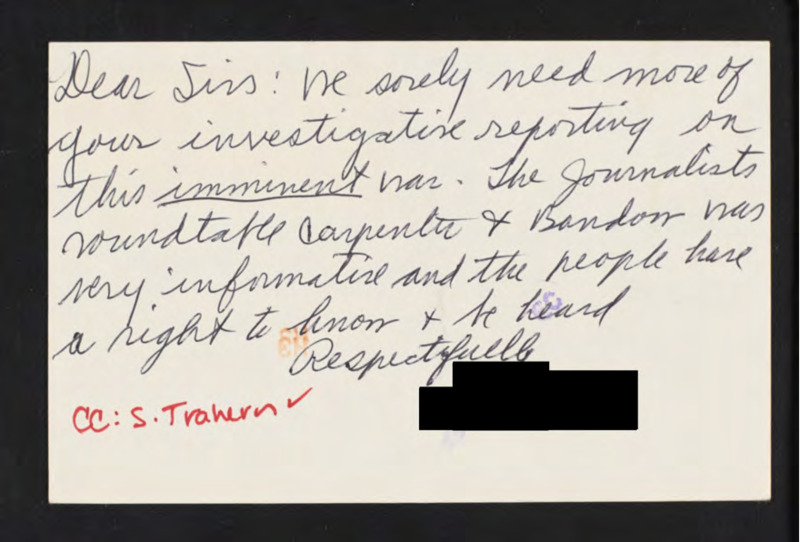 Dear Sirs: We sorely need more of
your investigative reporting on
this imminent war. The Journalists
roundtable Carpenter & Bandow was
very informative and the people have
a right to know & be heard
Respectfully
CC: S. Trahern ✓